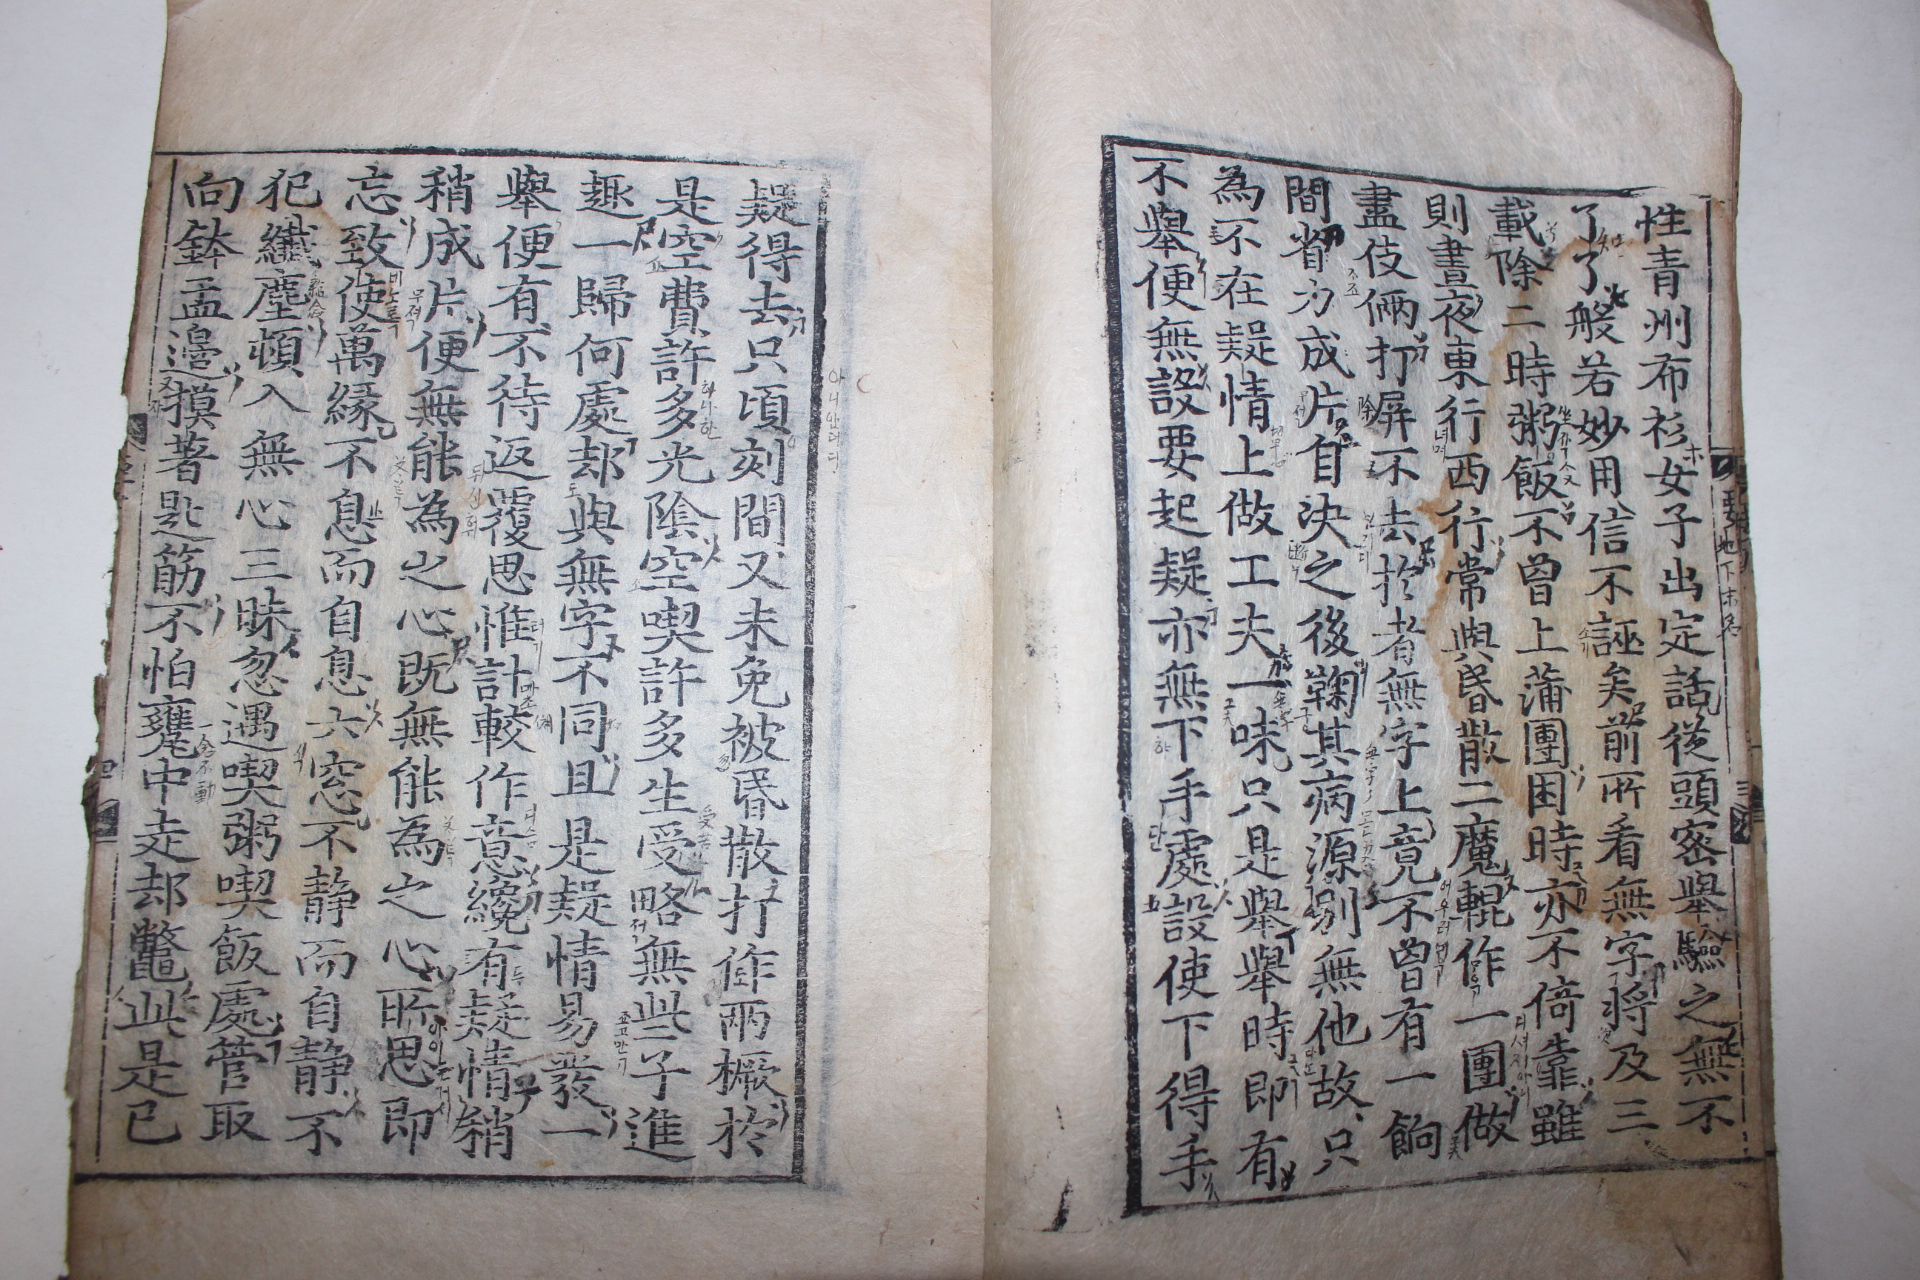 性青州布衫女子出定話從頭密擧驗之無不
了了般若妙用信不誣矣前所看無字將及三
載除二時粥飯不曾上蒲團困時亦不倚靠雖
則晝夜東行西行常與昏散二魔輥作一團做
盡伎倆打屏不去於者無字上竟不曾有一餉
間省力成片自決之後鞠其病源別無他故只
為不在疑情上做工夫一味只是擧擧時即有
不擧便無設要起疑亦無下手處設使下得手
疑得去只頃刻間又未免被昏散打作兩橛於
是空費許多光陰空喫許多生受略無些子進
趣一歸何處却與無字不同且是疑情易發一
擧便有不待返覆思惟計較作意纔有疑情稍
稍成片便無能為之心既無能為之心所思即
忘致使萬緣不息而自息六窓不靜而自靜不
犯纖塵頓入無心三昧忽遇喫粥喫飯處管取
向鉢盂邊摸著匙筯不怕甕中走却鼈此是已